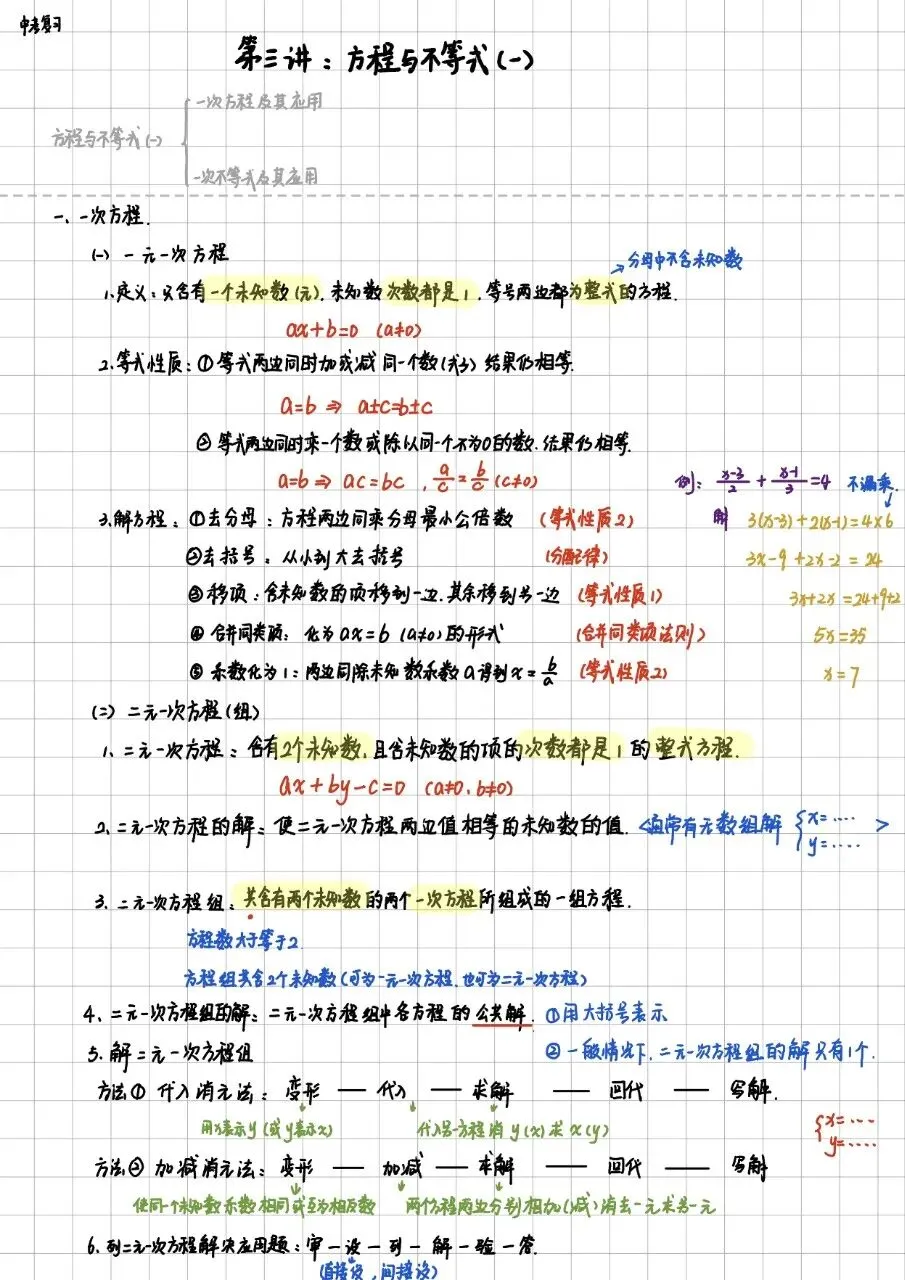 中考复习
第三讲：方程与不等式(一)
方程与不等式(一)
一次方程及其应用
一次不等式及其应用
一、一次方程.
(一) 一元一次方程
分母中不含未知数
1.定义：只含有一个未知数(元).未知数次数都是1,等号两边都为整式的方程.
ax+b=0 (a≠0)
2.等式性质：①等式两边同时加或减同一个数(式子)结果仍相等.
a=b ⇒ a±c=b±c
②等式两边同时乘一个数或除以同一个不为0的数.结果仍相等.
a=b ⇒ ac=bc , a/c=b/c (c≠0)
例: (x-3)/2 + (x-1)/3 =4 不漏乘.
3.解方程：①去分母：方程两边同乘分母最小公倍数 (等式性质2) 解 3(x-3)+2(x-1)=4×6
②去括号：从小到大去括号 (分配律) 3x-9+2x-2=24
③移项：含未知数的项移到一边.其余移到另一边 (等式性质1) 3x+2x=24+9+2
④合并同类项：化为ax=b (a≠0)的形式 (合并同类项法则) 5x=35
⑤系数化为1：两边同除未知数系数a得到x=b/a (等式性质2) x=7
(二) 二元一次方程(组)
1、二元一次方程：含有2个未知数,且含未知数的项的次数都是1的整式方程.
ax+by-c=0 (a≠0,b≠0)
2、二元一次方程的解：使二元一次方程两边值相等的未知数的值.<通常有无数组解 {x=.... y=.... >
3.二元一次方程组：共含有两个未知数的两个一次方程所组成的一组方程.
方程数大于等于2
方程组共含2个未知数(可为一元一次方程.也可为二元一次方程)
4、二元一次方程组的解：二元一次方程组中各方程的公共解. ①用大括号表示
5.解二元一次方程组 ②一般情况下.二元一次方程组的解只有1个.
方法① 代入消元法：变形 — 代入 — 求解 — 回代 — 写解.
用x表示y(或y表示x) 代入另一方程消y(x)求x(y)
{x=.... y=....
方法② 加减消元法：变形 — 加减 — 求解 — 回代 — 写解
使同一个未知数系数相同或互为相反数 两个方程两边分别相加(减)消去一元求另一元
6.列二元一次方程解决应用题：审一设一列一解一验一答.
(直接设,间接设)